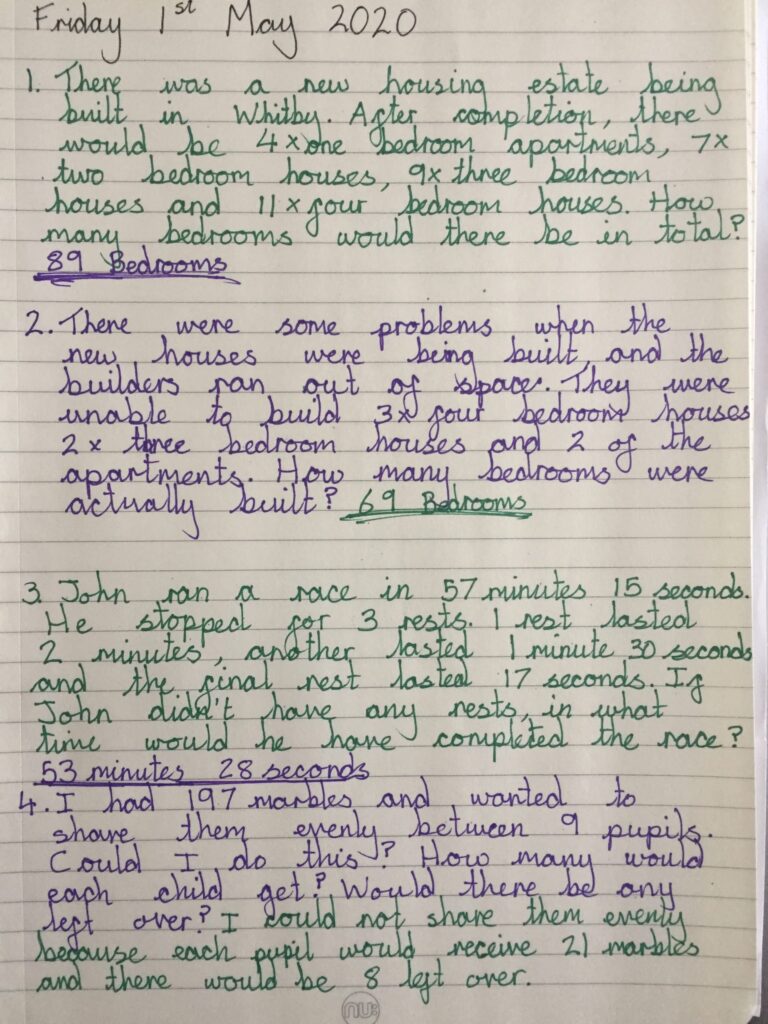 Friday 1st May 2020
1. There was a new housing estate being
built in Whitby. After completion, there
would be 4x one bedroom apartments, 7x
two bedroom houses, 9x three bedroom
houses and 11x four bedroom houses. How
many bedrooms would there be in total?
89 Bedrooms
2. There were some problems when the
new houses were being built and the
builders ran out of space. They were
unable to build 3x four bedroom houses
2x three bedroom houses and 2 of the
apartments. How many bedrooms were
actually built? 69 Bedrooms
3. John ran a race in 57 minutes 15 seconds.
He stopped for 3 rests. 1 rest lasted
2 minutes, another lasted 1 minute 30 seconds
and the final rest lasted 17 seconds. If
John didn't have any rests, in what
time would he have completed the race?
53 minutes 28 seconds
4. I had 197 marbles and wanted to
share them evenly between 9 pupils.
Could I do this? How many would
each child get? Would there be any
left over? I could not share them evenly
because each pupil would receive 21 marbles
and there would be 8 left over.
nu: